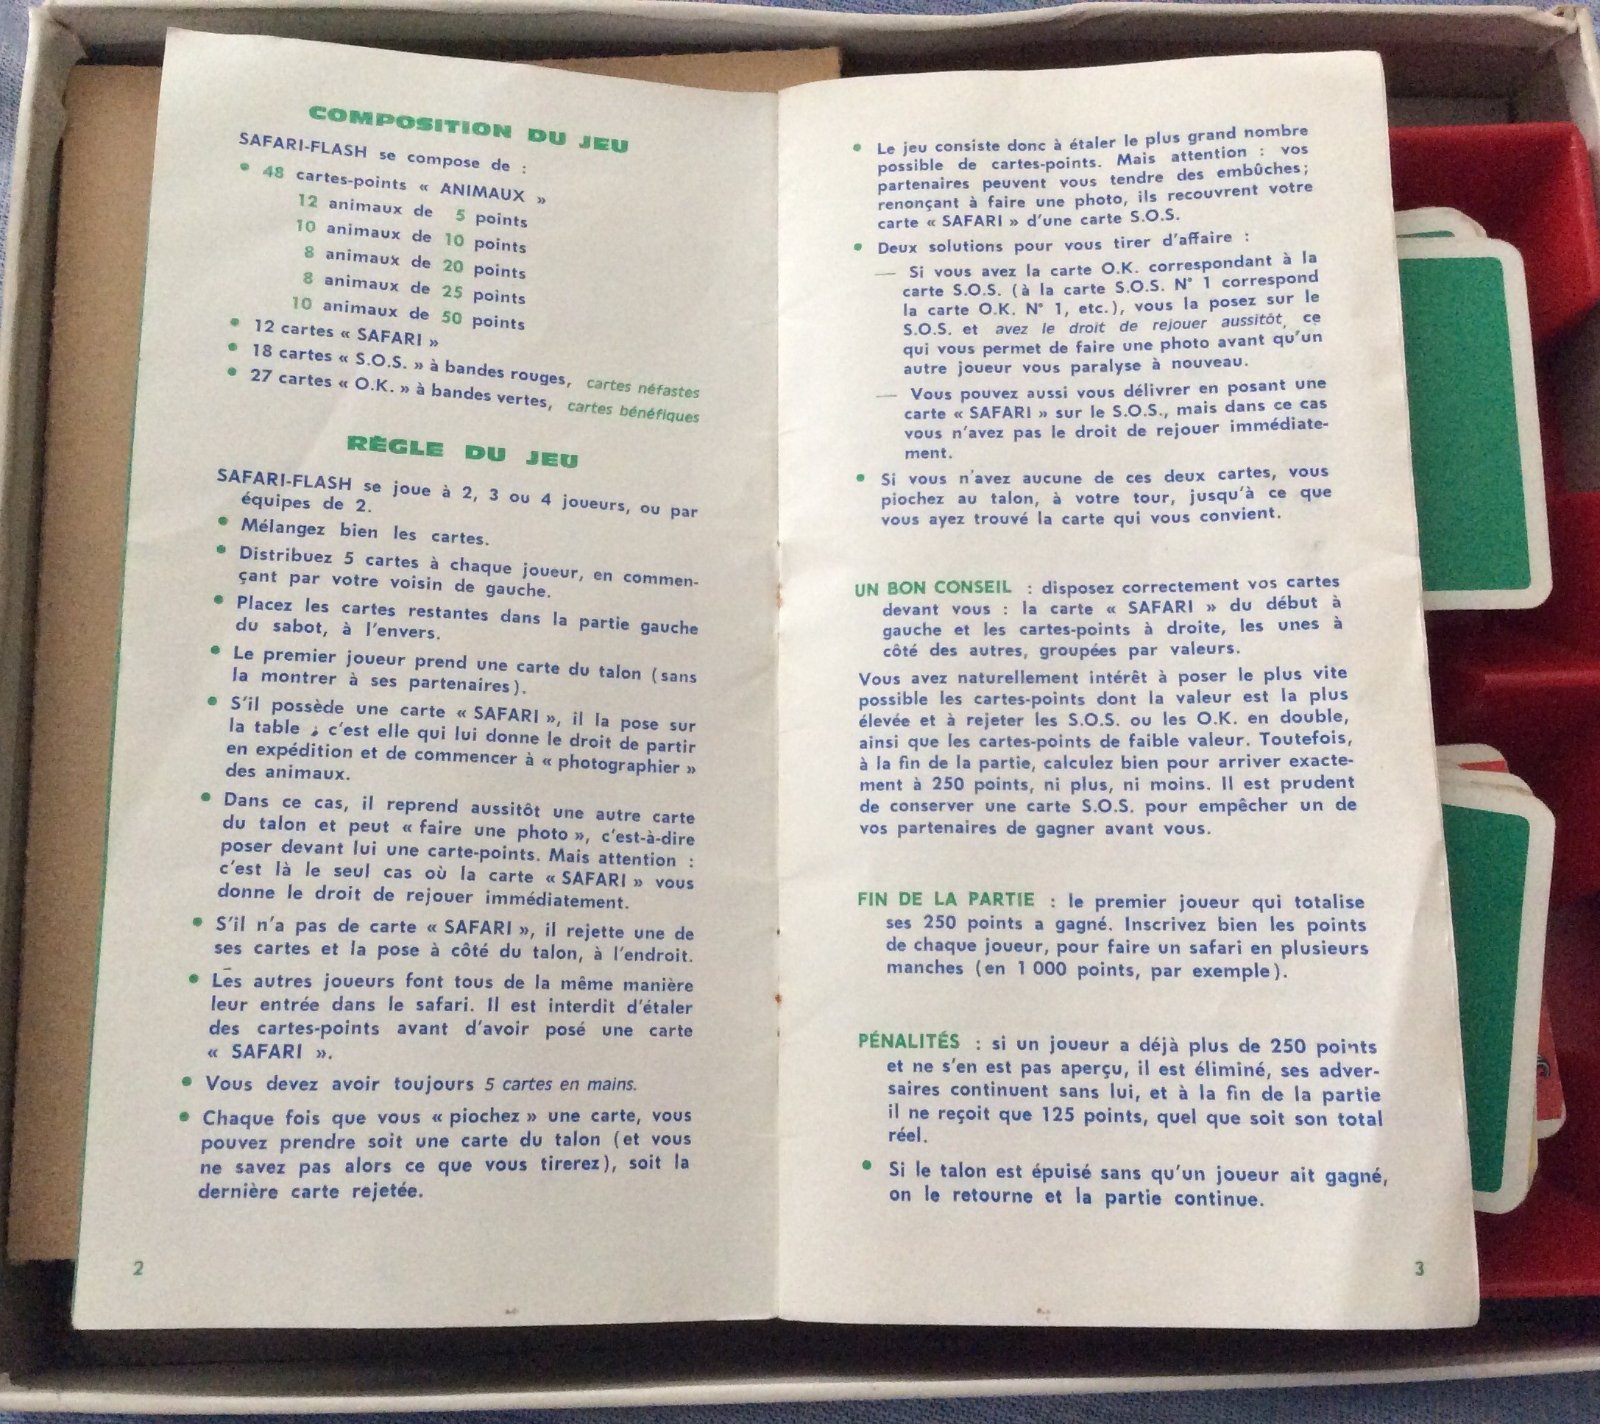 COMPOSITION DU JEU
SAFARI-FLASH se compose de :
• 48 cartes-points « ANIMAUX »
12 animaux de 5 points
10 animaux de 10 points
8 animaux de 20 points
8 animaux de 25 points
10 animaux de 50 points
• 12 cartes « SAFARI »
• 18 cartes « S.O.S. » à bandes rouges, cartes néfastes
• 27 cartes « O.K. » à bandes vertes, cartes bénéfiques
RÈGLE DU JEU
SAFARI-FLASH se joue à 2, 3 ou 4 joueurs, ou par
équipes de 2.
• Mélangez bien les cartes.
• Distribuez 5 cartes à chaque joueur, en commen-
çant par votre voisin de gauche.
• Placez les cartes restantes dans la partie gauche
du sabot, à l'envers.
• Le premier joueur prend une carte du talon (sans
la montrer à ses partenaires).
• S'il possède une carte « SAFARI », il la pose sur
la table ; c'est elle qui lui donne le droit de partir
en expédition et de commencer à « photographier »
des animaux.
• Dans ce cas, il reprend aussitôt une autre carte
du talon et peut « faire une photo », c'est-à-dire
poser devant lui une carte-points. Mais attention :
c'est là le seul cas où la carte « SAFARI » vous
donne le droit de rejouer immédiatement.
• S'il n'a pas de carte « SAFARI », il rejette une de
ses cartes et la pose à côté du talon, à l'endroit.
• Les autres joueurs font tous de la même manière
leur entrée dans le safari. Il est interdit d'étaler
des cartes-points avant d'avoir posé une carte
« SAFARI ».
• Vous devez avoir toujours 5 cartes en mains.
• Chaque fois que vous « piochez » une carte, vous
pouvez prendre soit une carte du talon (et vous
ne savez pas alors ce que vous tirerez), soit la
dernière carte rejetée.
2
• Le jeu consiste donc à étaler le plus grand nombre
possible de cartes-points. Mais attention : vos
partenaires peuvent vous tendre des embûches;
renonçant à faire une photo, ils recouvrent votre
carte « SAFARI » d'une carte S.O.S.
• Deux solutions pour vous tirer d'affaire :
— Si vous avez la carte O.K. correspondant à la
carte S.O.S. (à la carte S.O.S. N° 1 correspond
la carte O.K. N° 1, etc.), vous la posez sur le
S.O.S. et avez le droit de rejouer aussitôt, ce
qui vous permet de faire une photo avant qu'un
autre joueur vous paralyse à nouveau.
— Vous pouvez aussi vous délivrer en posant une
carte « SAFARI » sur le S.O.S., mais dans ce cas
vous n'avez pas le droit de rejouer immédiate-
ment.
• Si vous n'avez aucune de ces deux cartes, vous
piochez au talon, à votre tour, jusqu'à ce que
vous ayez trouvé la carte qui vous convient.
UN BON CONSEIL : disposez correctement vos cartes
devant vous : la carte « SAFARI » du début à
gauche et les cartes-points à droite, les unes à
côté des autres, groupées par valeurs.
Vous avez naturellement intérêt à poser le plus vite
possible les cartes-points dont la valeur est la plus
élevée et à rejeter les S.O.S. ou les O.K. en double,
ainsi que les cartes-points de faible valeur. Toutefois,
à la fin de la partie, calculez bien pour arriver exacte-
ment à 250 points, ni plus, ni moins. Il est prudent
de conserver une carte S.O.S. pour empêcher un de
vos partenaires de gagner avant vous.
FIN DE LA PARTIE : le premier joueur qui totalise
ses 250 points a gagné. Inscrivez bien les points
de chaque joueur, pour faire un safari en plusieurs
manches (en 1 000 points, par exemple).
PÉNALITÉS : si un joueur a déjà plus de 250 points
et ne s'en est pas aperçu, il est éliminé, ses adver-
saires continuent sans lui, et à la fin de la partie
il ne reçoit que 125 points, quel que soit son total
réel.
• Si le talon est épuisé sans qu'un joueur ait gagné,
on le retourne et la partie continue.
3